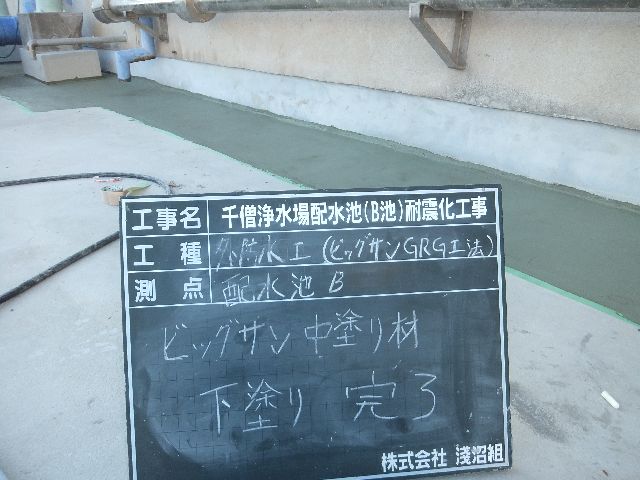 工事名 千僧浄水場配水池(B池)耐震化工事
工種 外防水工(ビッグサンGRG工法)
測点 配水池 B
ビッグサン 中塗り材
下塗り 完了
株式会社 淺沼組